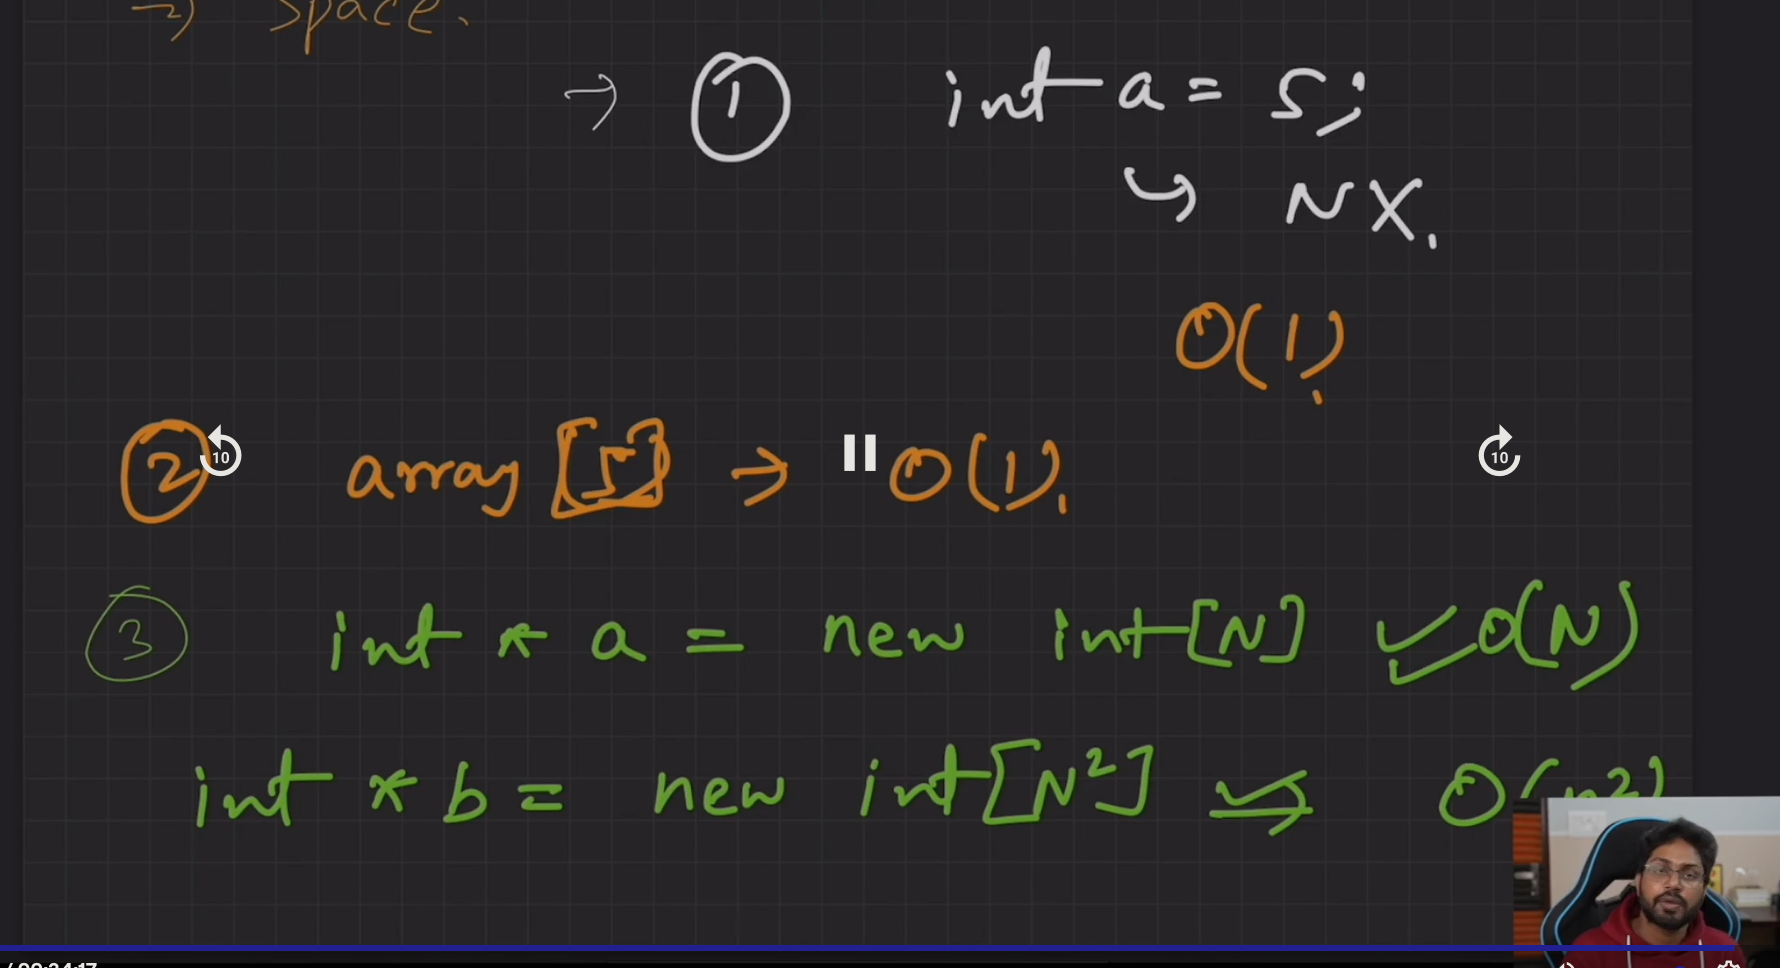 → space.
→ ① int a = 5;
↳ N X.
O(1).
② array [5] → O(1).
10
10
③ int * a = new int[N] ✓ O(N)
int * b = new int[N²] ↳ O(n²)